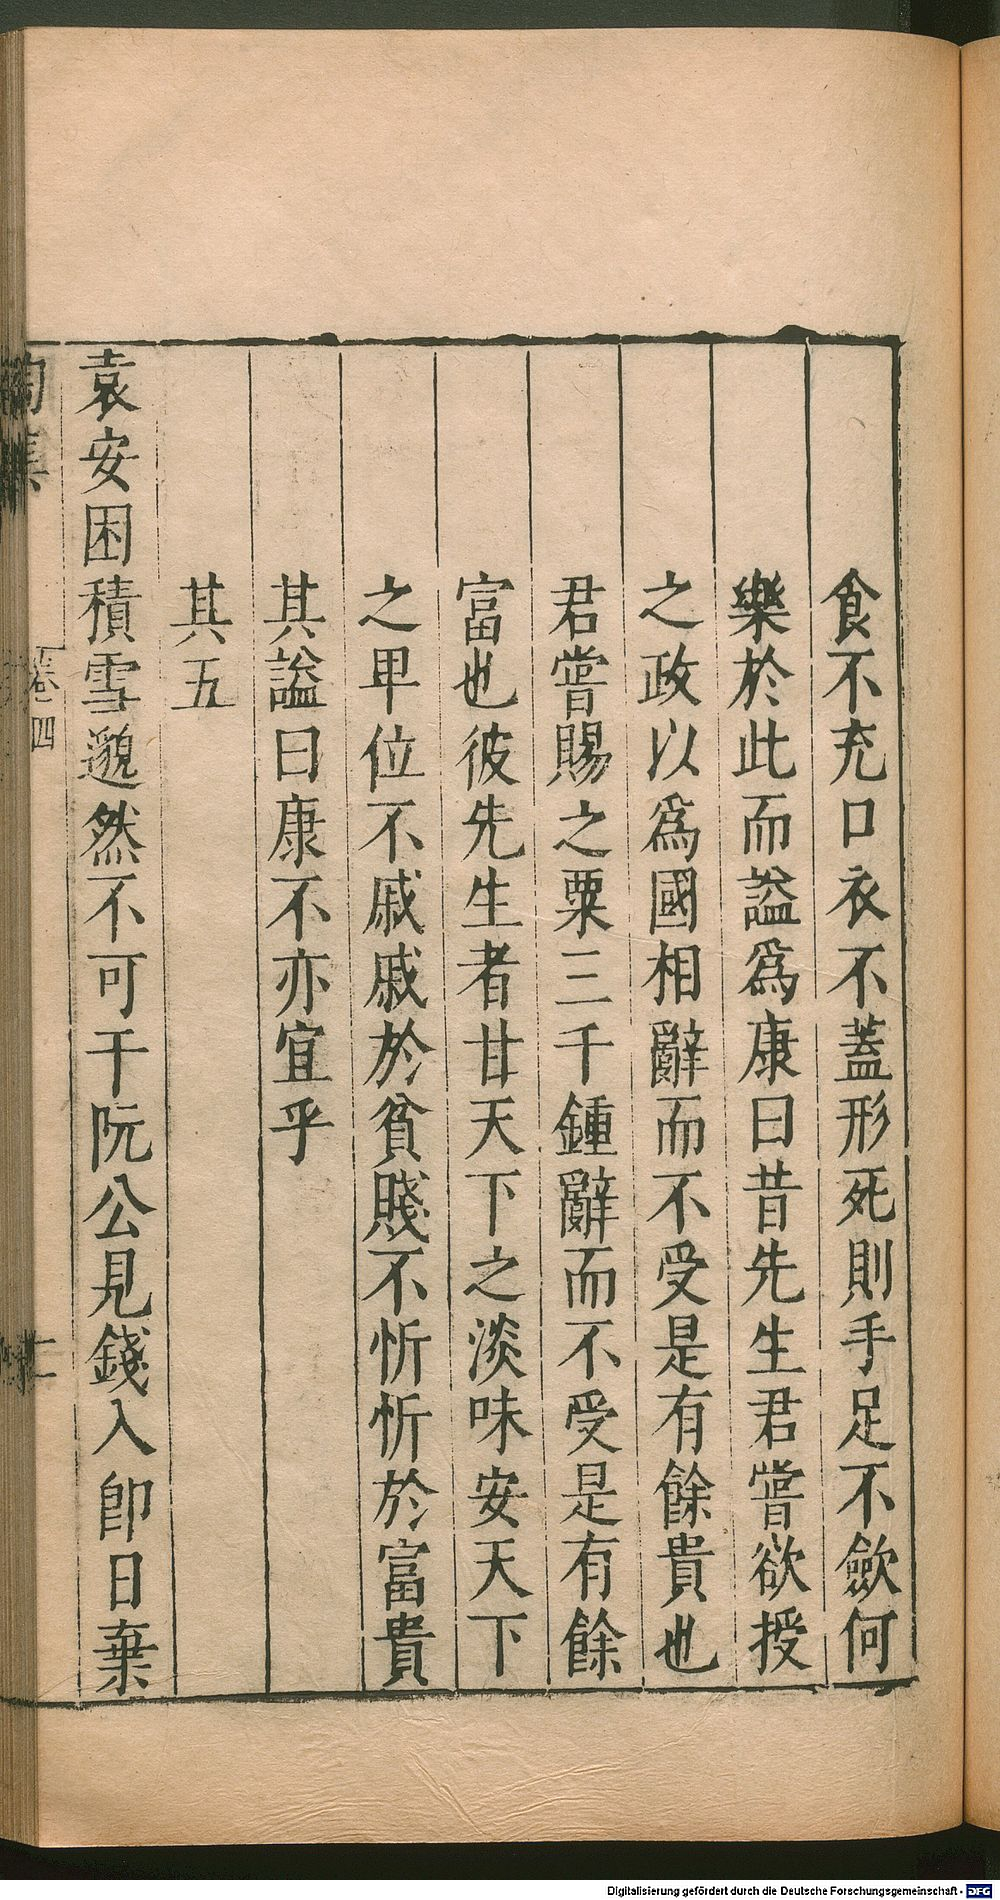 食不充口衣不蓋形死則手足不歛何
樂於此而謚爲康曰昔先生君嘗欲授
之政以爲國相辭而不受是有餘貴也
君嘗賜之粟三千鍾辭而不受是有餘
富也彼先生者甘天下之淡味安天下
之甲位不戚戚於貧賤不忻忻於富貴
其謚曰康不亦宜乎
其五
袁安困積雪邈然不可干阮公見錢入卽日棄
卷四
Digitalisierung gefördert durch die Deutsche Forschungsgemeinschaft - DFG